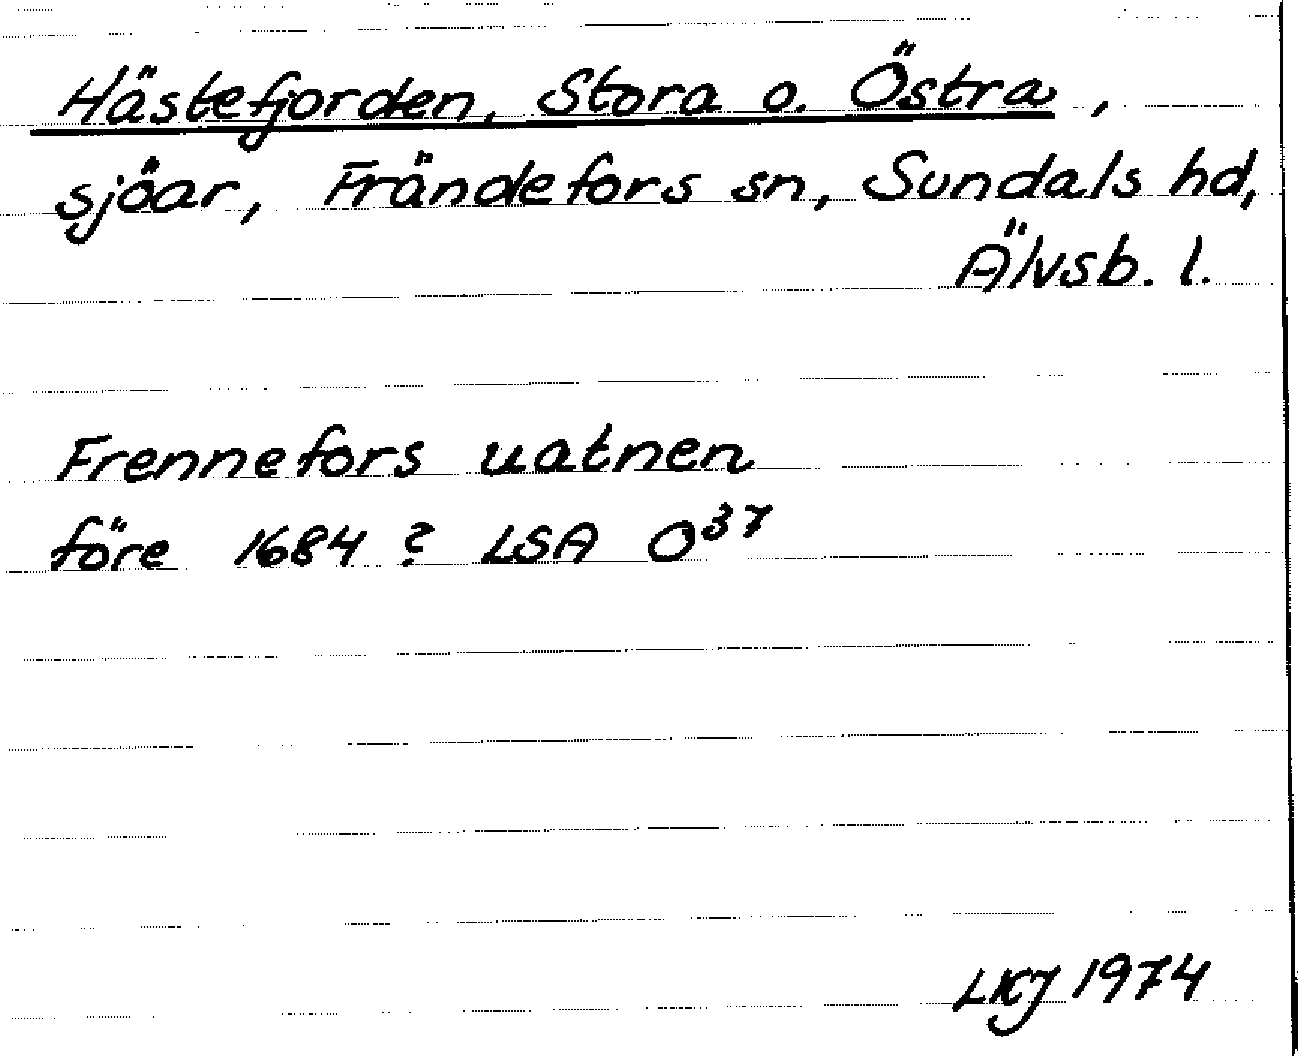 Hästefjorden, Stora o. Östra,
sjöar, Frändefors sn, Sundals hd,
Älvsb. l.
Frennefors uatnen
före 1684? LSA O37
LKJ 1974